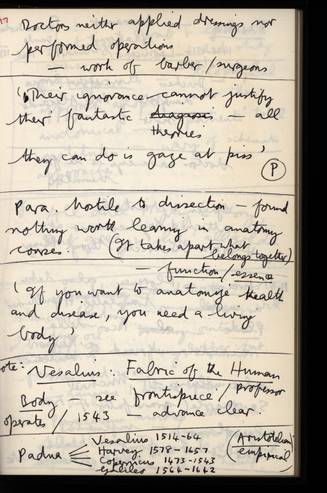 Doctors neither applied dressings nor
performed operations
— work of barber/surgeons
'Their ignorance cannot justify
their fantastic diagnosis — all
theories
they can do is gaze at piss'
P
Para. hostile to dissection — found
nothing worth learning in anatomy
courses. (It takes apart what
belongs together)
— function/essence
'If you want to anatomize health
and disease, you need a living
body'
ote: Vesalius: Fabric of the Human
Body — see frontispiece / Professor
operates / 1543 — advance clear.
Padua
Vesalius 1514-64
Harvey 1578-1657
Copernicus 1473-1543
Galileo 1564-1642
(Aristotelian
empirical)